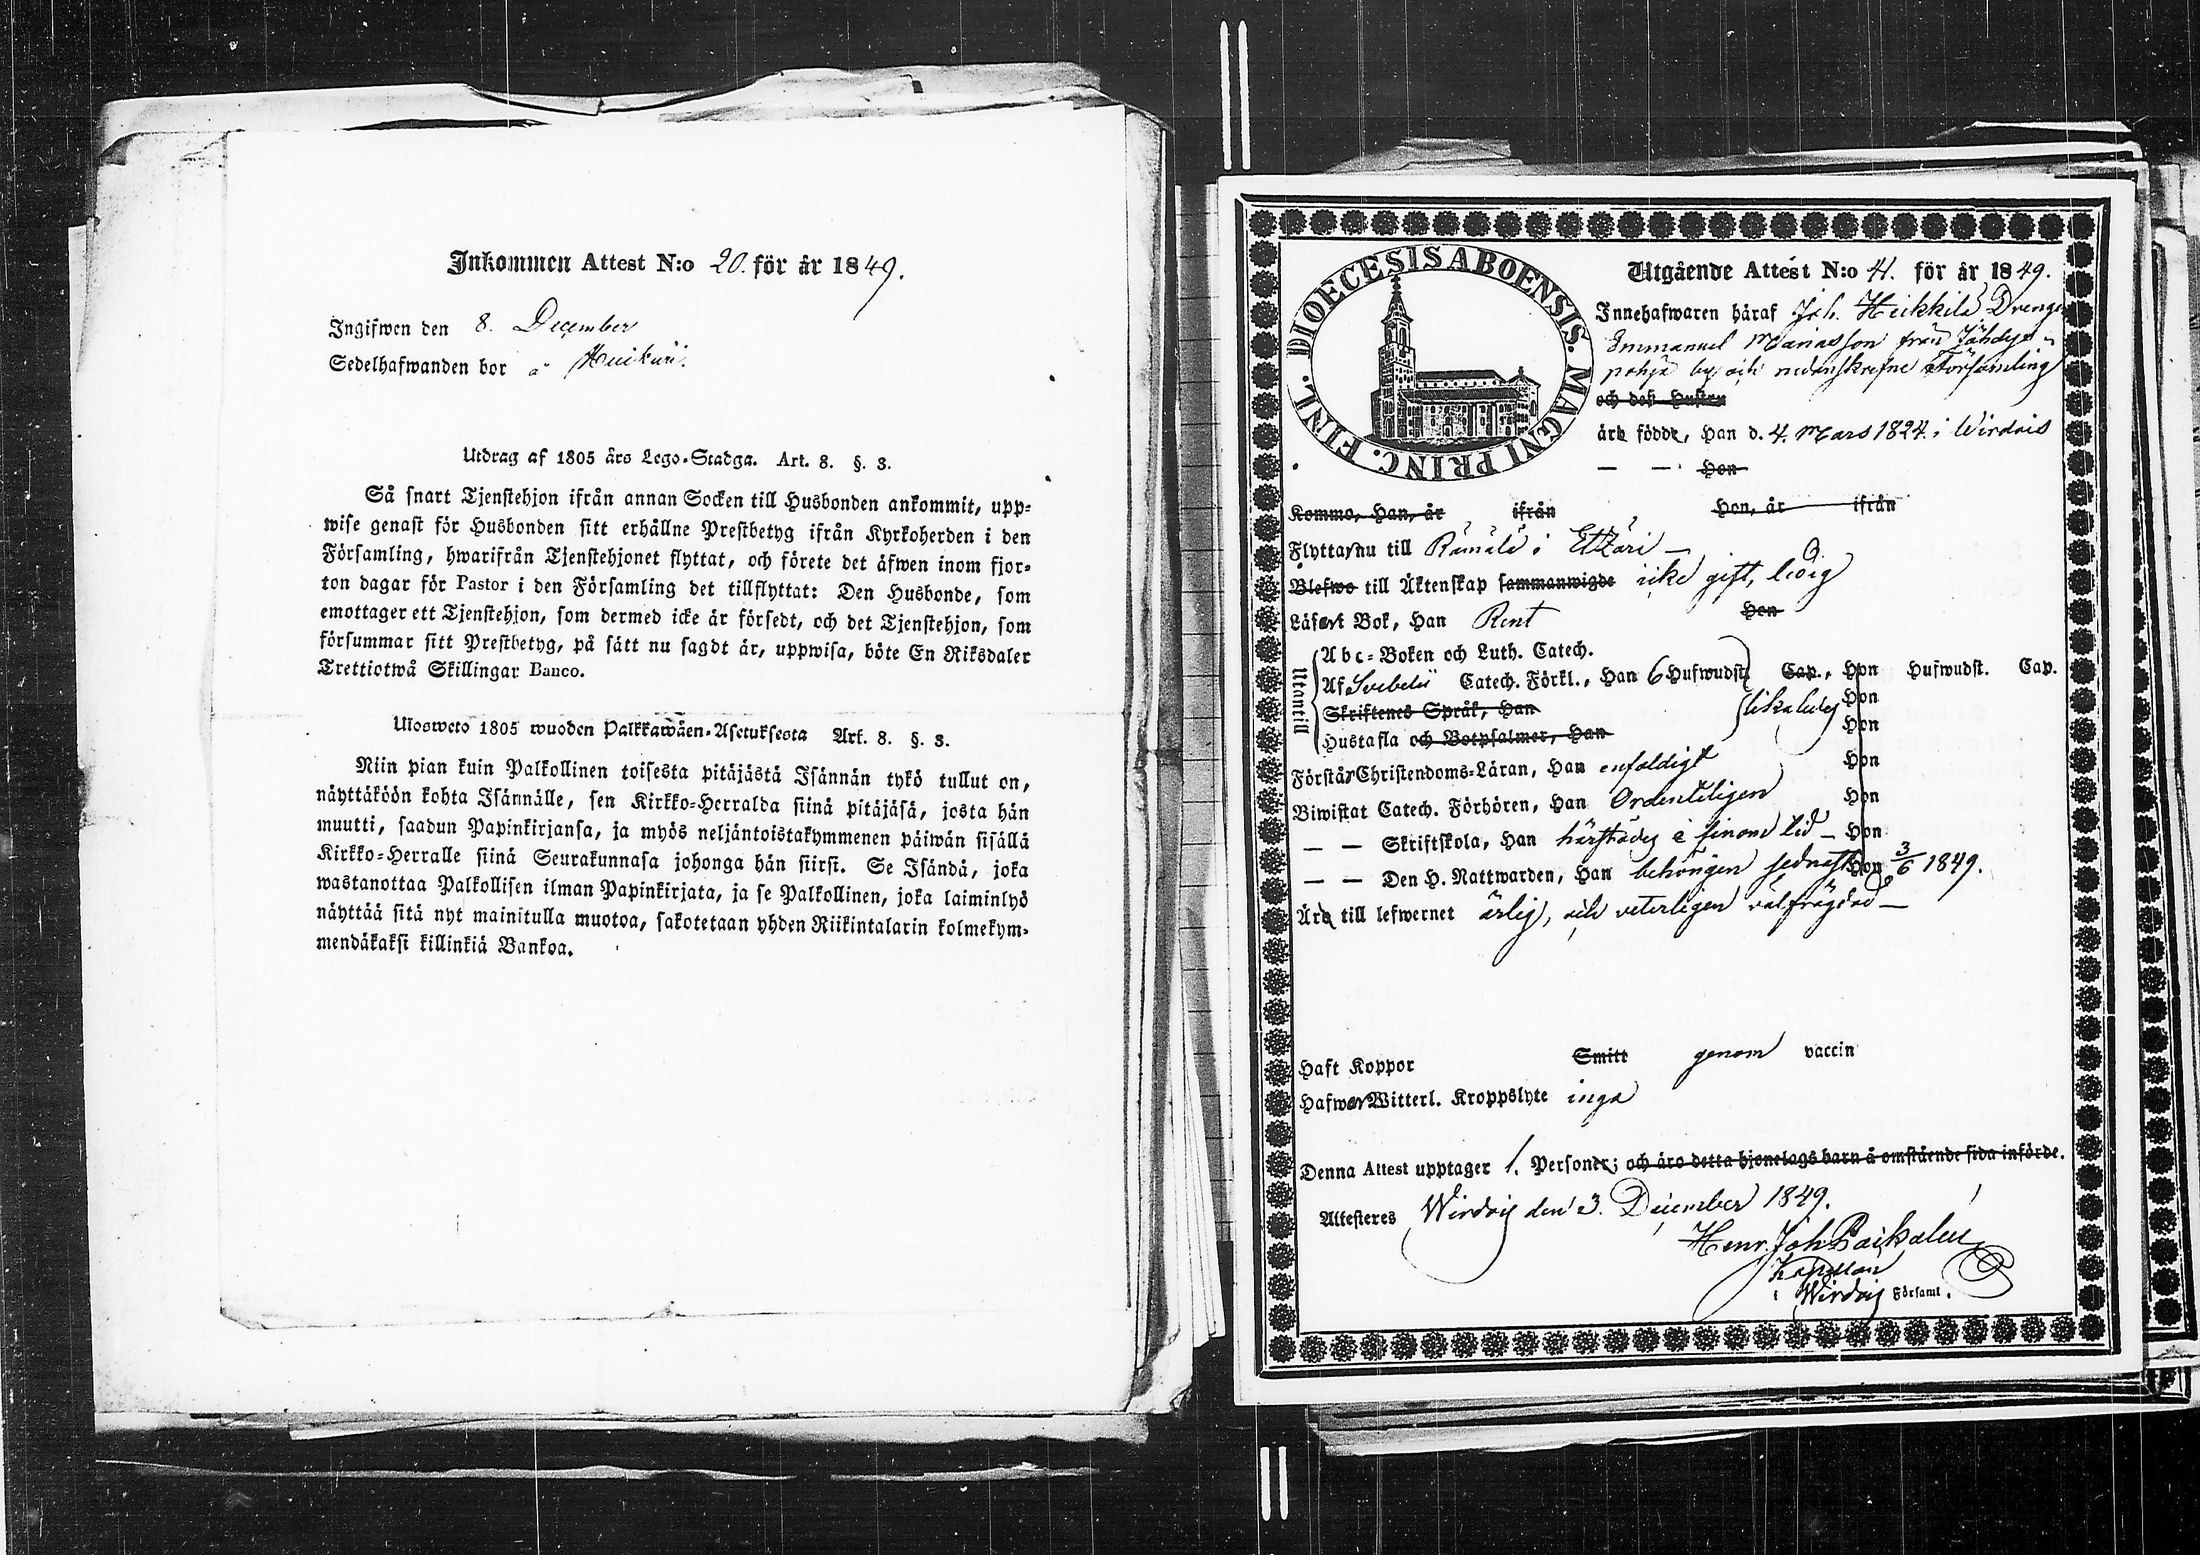 Inkommen Attest N:o 20. för år 1849.
Ingifwen den 8. December
Sedelhafwanden bor å
Utdrag af 1805 års Lego-Stadga. Art. 8. §. 3.
Så snart Tjenstehjon ifrån annan Socken till Husbonden ankommit, upp-
wise genast för Husbonden sitt erhållne Prestbetyg ifrån Kyrkoherden i den
Församling, hwarifrån Tjenstehjonet flyttat, och förete det äfwen inom fjor-
ton dagar för Pastor i den Församling det tillflyttat: Den Husbonde, som
emottager ett Tjenstehjon, som dermed icke är försedt, och det Tjenstehjon, som
försummar sitt Prestbetyg, på sätt nu sagdt är, uppwisa, böte En Riksdaler
Trettiotwå Skillingar Banco.
Ulosweto 1805 wuoden Palkkawäen-Asetuksesta Art. 8. §. 3.
Niin pian kuin Palkollinen toisesta pitäjästä Isännän tykö tullut on,
näyttäköön kohta Isännälle, sen Kirkko-Herralda siinä pitäjäsä, josta hän
muutti, saadun Papinkirjansa, ja myös neljäntoistakymmenen päiwän sisällä
Kirkko-Herralle siinä Seurakunnasa johonga hän siirsi. Se Isändä, joka
wastanottaa Palkollisen ilman Papinkirjata, ja se Palkollinen, joka laiminlyö
näyttää sitä nyt mainitulla muotoa, sakotetaan yhden Riikintalarin kolmekym-
mendäkaksi killinkiä Bankoa.
DIOECESIS ABOENSIS. MAGNI PRINC. FINL.
Utgående Attest N:o 41. för år 1849.
Innehafwaren häraf Joh. Heikkilä Drengen
Emmanuel från Jähdys-
pohja by och nedanskrefne Församling
och deß Hustru
äro födde, Han d. 4. Mars 1824. i Wirdois
— — Hon
Komma, Han, år ifrån Hon, år ifrån
Flytta nu till i Etzäri —
Blefwo till Äktenskap sammanwigde icke gift, ledig
Läsart Bok, Han Rent Hon
Utantill
Abc-Boken och Luth. Catech.
Af Svebelii Catech. Förkl., Han 6 Hufwudst. Cap., Hon Hufwudst. Cap.
Skriftenes Språk, Han Hon
Hustafla och Botpsalmer, Han Hon
Förstår Christendoms-Läran, Han enfaldigt Hon
Biwistat Catech. Förhören, Han Ordentligen Hon
— — Skriftskola, Han härstädes i sinom tid — Hon
— — Den H. Nattwarden, Han behörigen sednast Hon 3/6 1849.
Äro till lefwernet ärlig, och veterligen välfrägdad —
Haft Koppor Smitt genom vaccin
Hafwer Witterl. Kroppslyte inga
Denna Attest upptager 1. Personer; och äro detta hjonelags barn å omstående sida införde.
Attesteres Wirdois den 3. December 1849.
Henr. Joh
Kapellan
i Wirdois Församl.